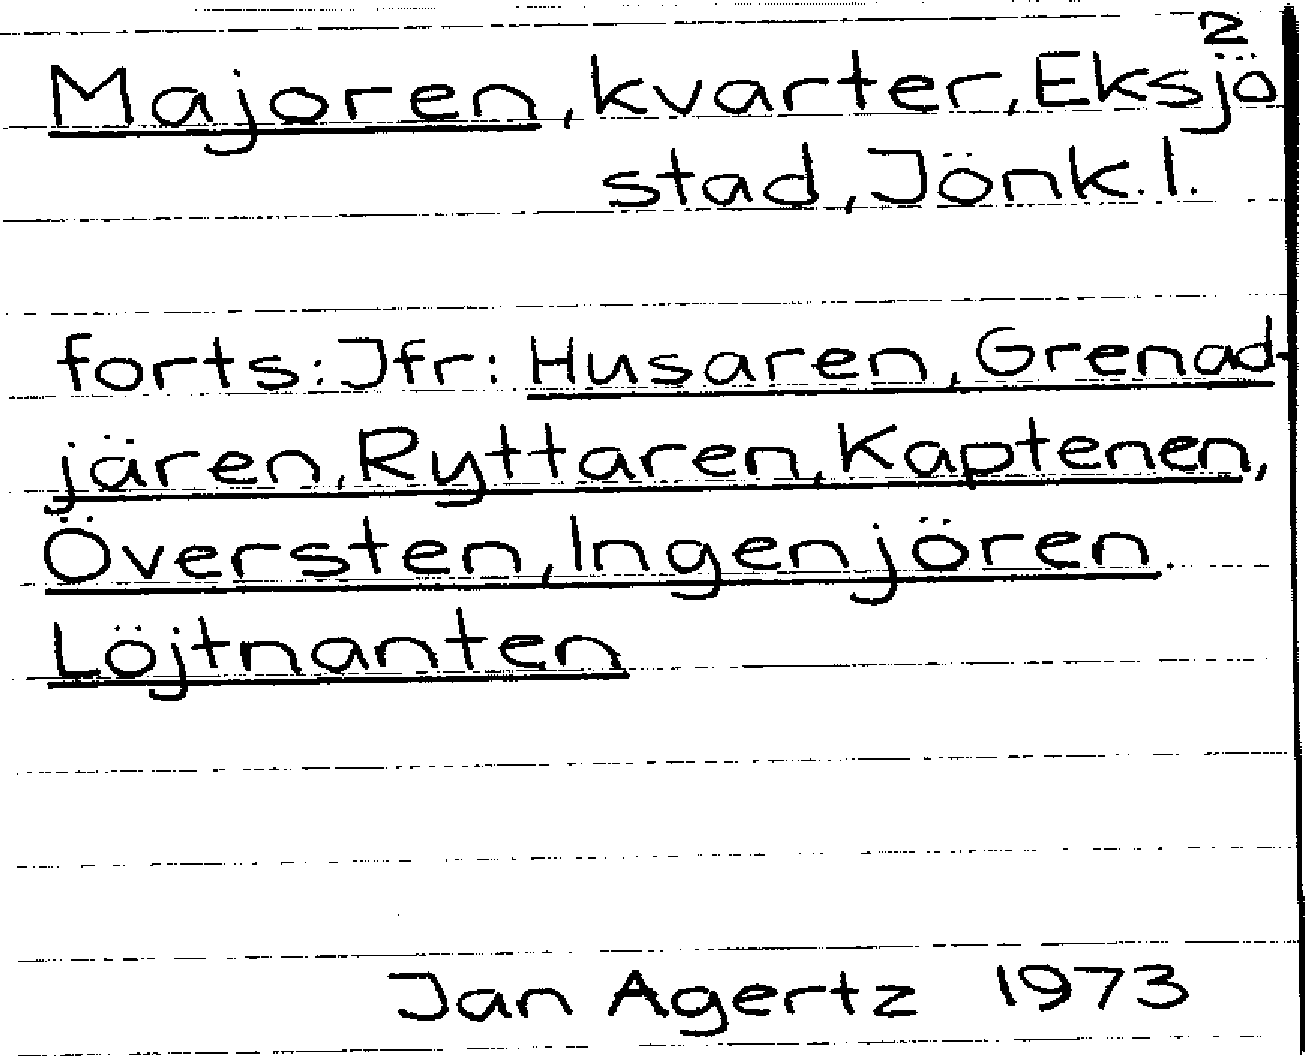 2
Majoren, kvarter, Eksjö
stad, Jönk.l.
forts: Jfr: Husaren, Grenad-
jären, Ryttaren, Kaptenen,
Översten, Ingenjören.
Löjtnanten
Jan Agertz 1973